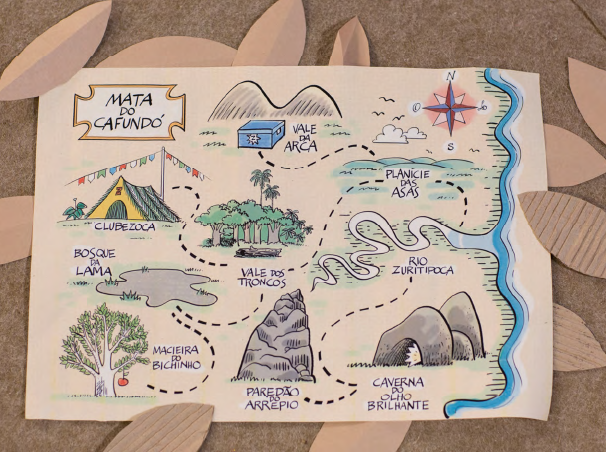 MATA
DO
CAFUNDÓ
N
O
L
S
VALE
DA
ARCA
PLANÍCIE
DAS
ASAS
CLUBEZOCA
BOSQUE
DA
LAMA
VALE DOS
TRONCOS
RIO
ZURITIPOCA
MACIEIRA
DO
BICHINHO
PAREDÃO
DO
ARREPIO
CAVERNA
DO
OLHO
BRILHANTE